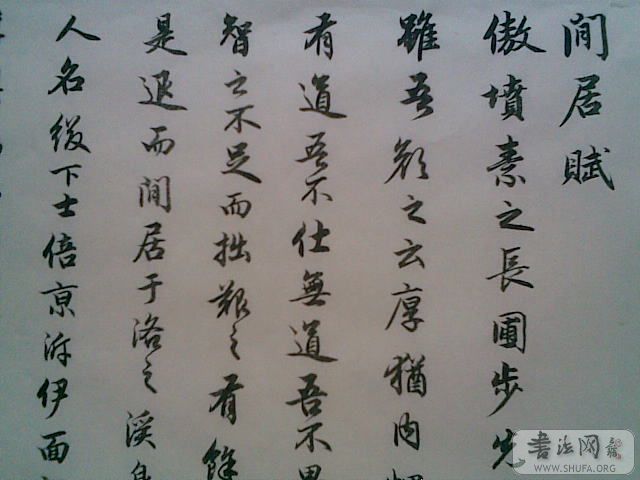 閒居賦
傲墳素之長圃步先
雖吾顏之云厚猶内
有道吾不仕無道吾不
智之不足而拙艱之有餘
是退而閒居于洛之涘身
人名綴下士倍京泝伊面
書法网
WWW.SHUFA.ORG